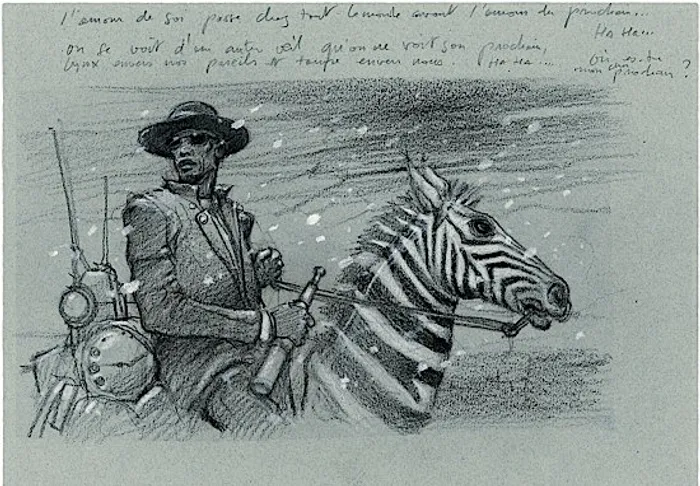 l'amour de soi passe chez tout le monde avant l'amour du prochain...
Ha Ha...
on se voit d'un autre œil qu'on ne voit son prochain,
lynx envers nos pareils et taupe envers nous. Ha Ha...
Où es-tu
mon prochain ?